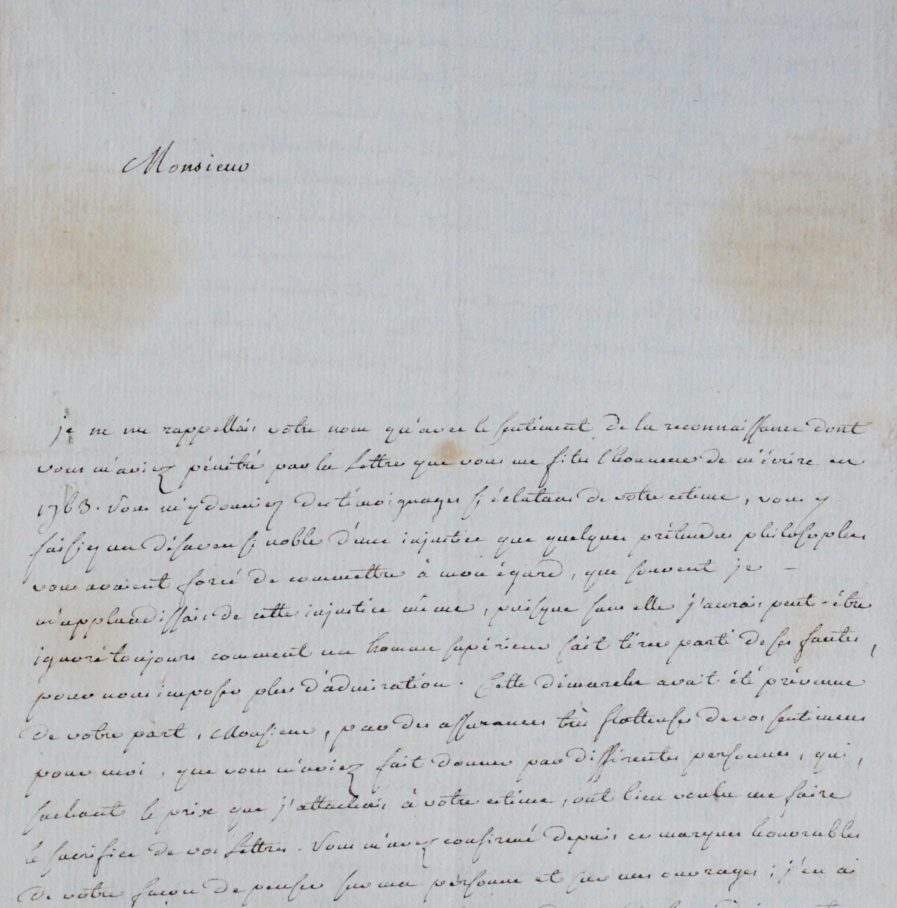 Monsieur
je ne me rappellais votre nom qu'avec le sentiment de la reconnaissance dont
vous m'aviez pénétré par la lettre que vous me fites l'honneur de m'écrire en
1763. Vous m'y donniez des témoignages si éclatans de votre estime, vous y
faisiez un désaveu si noble d'une injustice que quelques prétendus philosophes
vous avaient forcé de commettre à mon égard, que souvent je
m'applaudissais de cette injustice même, puisque sans elle j'aurais peut-être
ignoré toujours comment un homme supérieur sait tirer parti de ses fautes,
pour nous imposer plus d'admiration. Cette démarche avait été prévenue
de votre part, Monsieur, par des assurances très flatteuses de vos sentimens
pour moi, que vous m'aviez fait donner par différentes personnes, qui,
sachant le prix que j'attachais à votre estime, ont bien voulu me faire
le sacrifice de vos lettres. Vous m'avez confirmé depuis ces marques honorables
de votre façon de penser sur ma personne et sur mes ouvrages; j'en ai